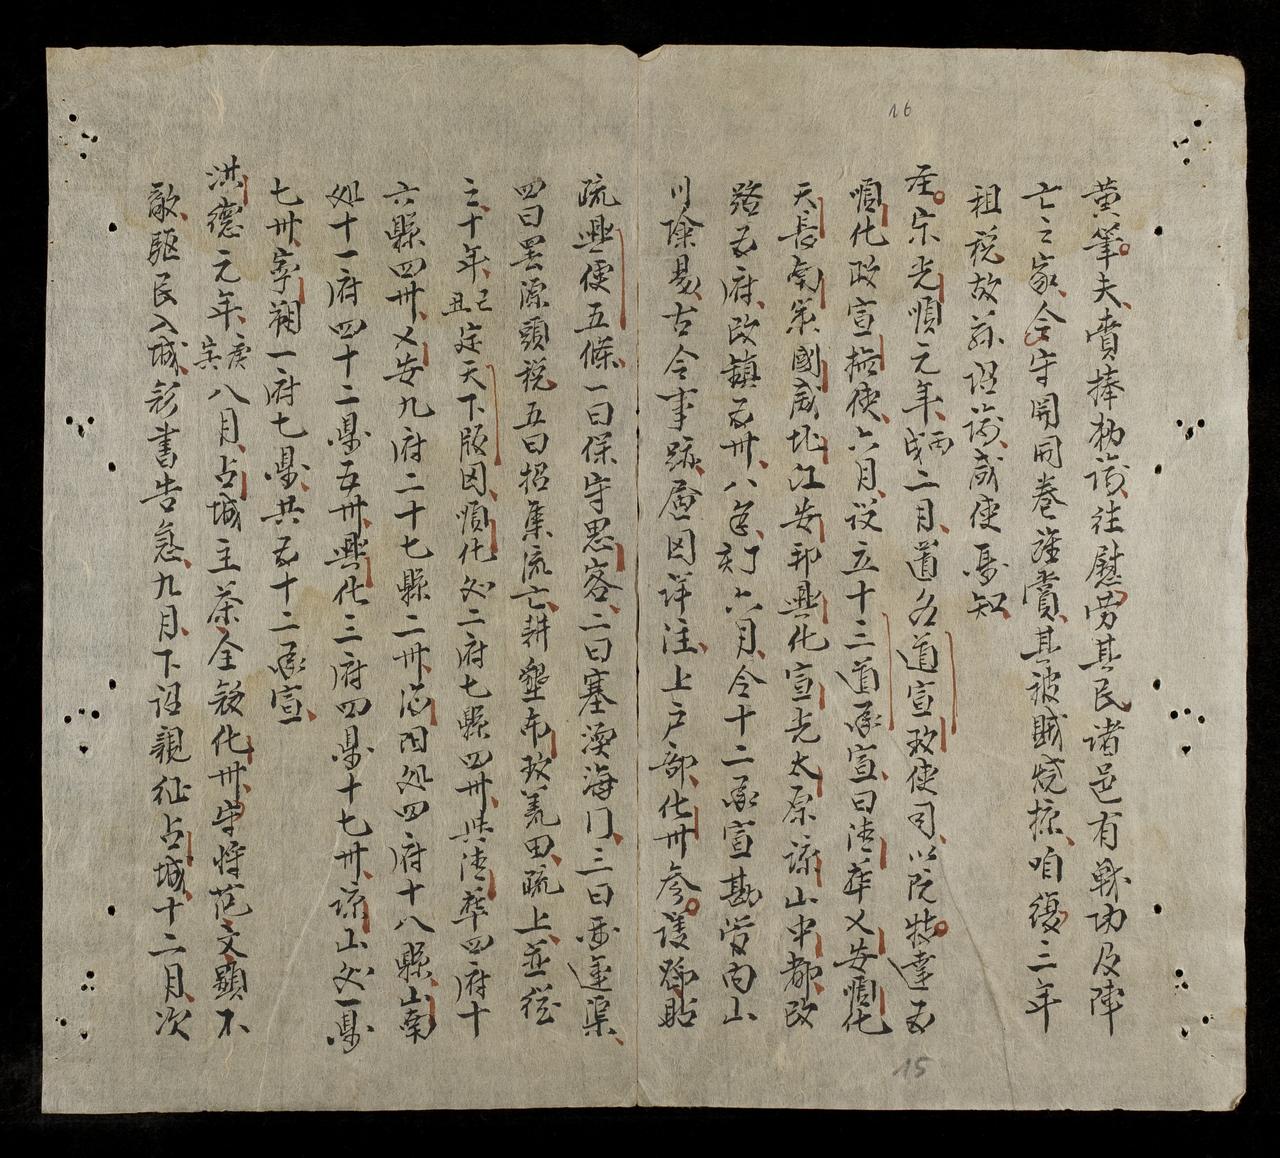 16
黄筆夫賫捧勑諭往慰勞其民諸邑有戰功及陣
亡之家令守開開卷旌賞其被賊燒掠咱復三年
租稅故茲詔諭咸使聞知
圣宗光順元年丙戌二月道各道宣政使司以阮特達為
順化政宣撫使六月设立十三道承宣曰清華乂安順化
天長南策國威北江安邦興化宣光太原諒山中都改
路為府改鎮為卅八年丁亥六月令十二承宣勘管内山
川險易古今事跡畫図详注上户部化卅參護鄧貼
疏興便五條一曰保守思客二曰塞澳海门三曰西運渠
四曰罢源頭税五曰招集流亡耕墾布政荒田疏上並從
之十年己丑定天下版図順化处二府七縣四卅共清華四府十
六縣四卅乂安九府二十七縣二卅海阳处四府十八縣山南
处十一府四十二縣五卅興化三府四縣十七卅諒山处一縣
七卅寧朔一府七縣共為十二承宣
洪德元年庚寅八月占城主茶全寇化卅守将范文顯不
敵驅民入城彩書告急九月下诏親征占城十二月次
15